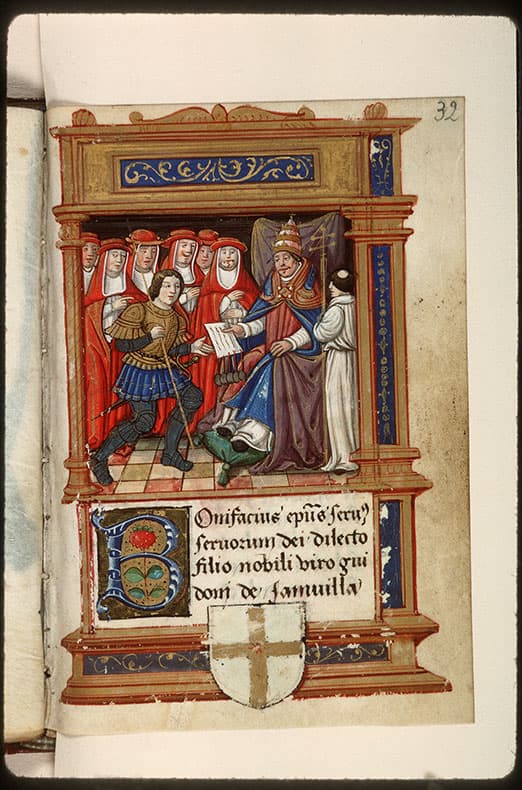 32
Bonifacius ep̅us seruꝰ
seruorum dei dilecto
filio nobili viro gui
doni de Janvilla